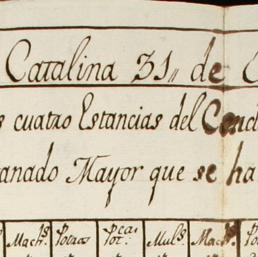 Catalina 31,, de
s cuatro Estancias del Cond
anado Mayor que se ha
Machs. Potracs Potcas. Muls. Machs. Po